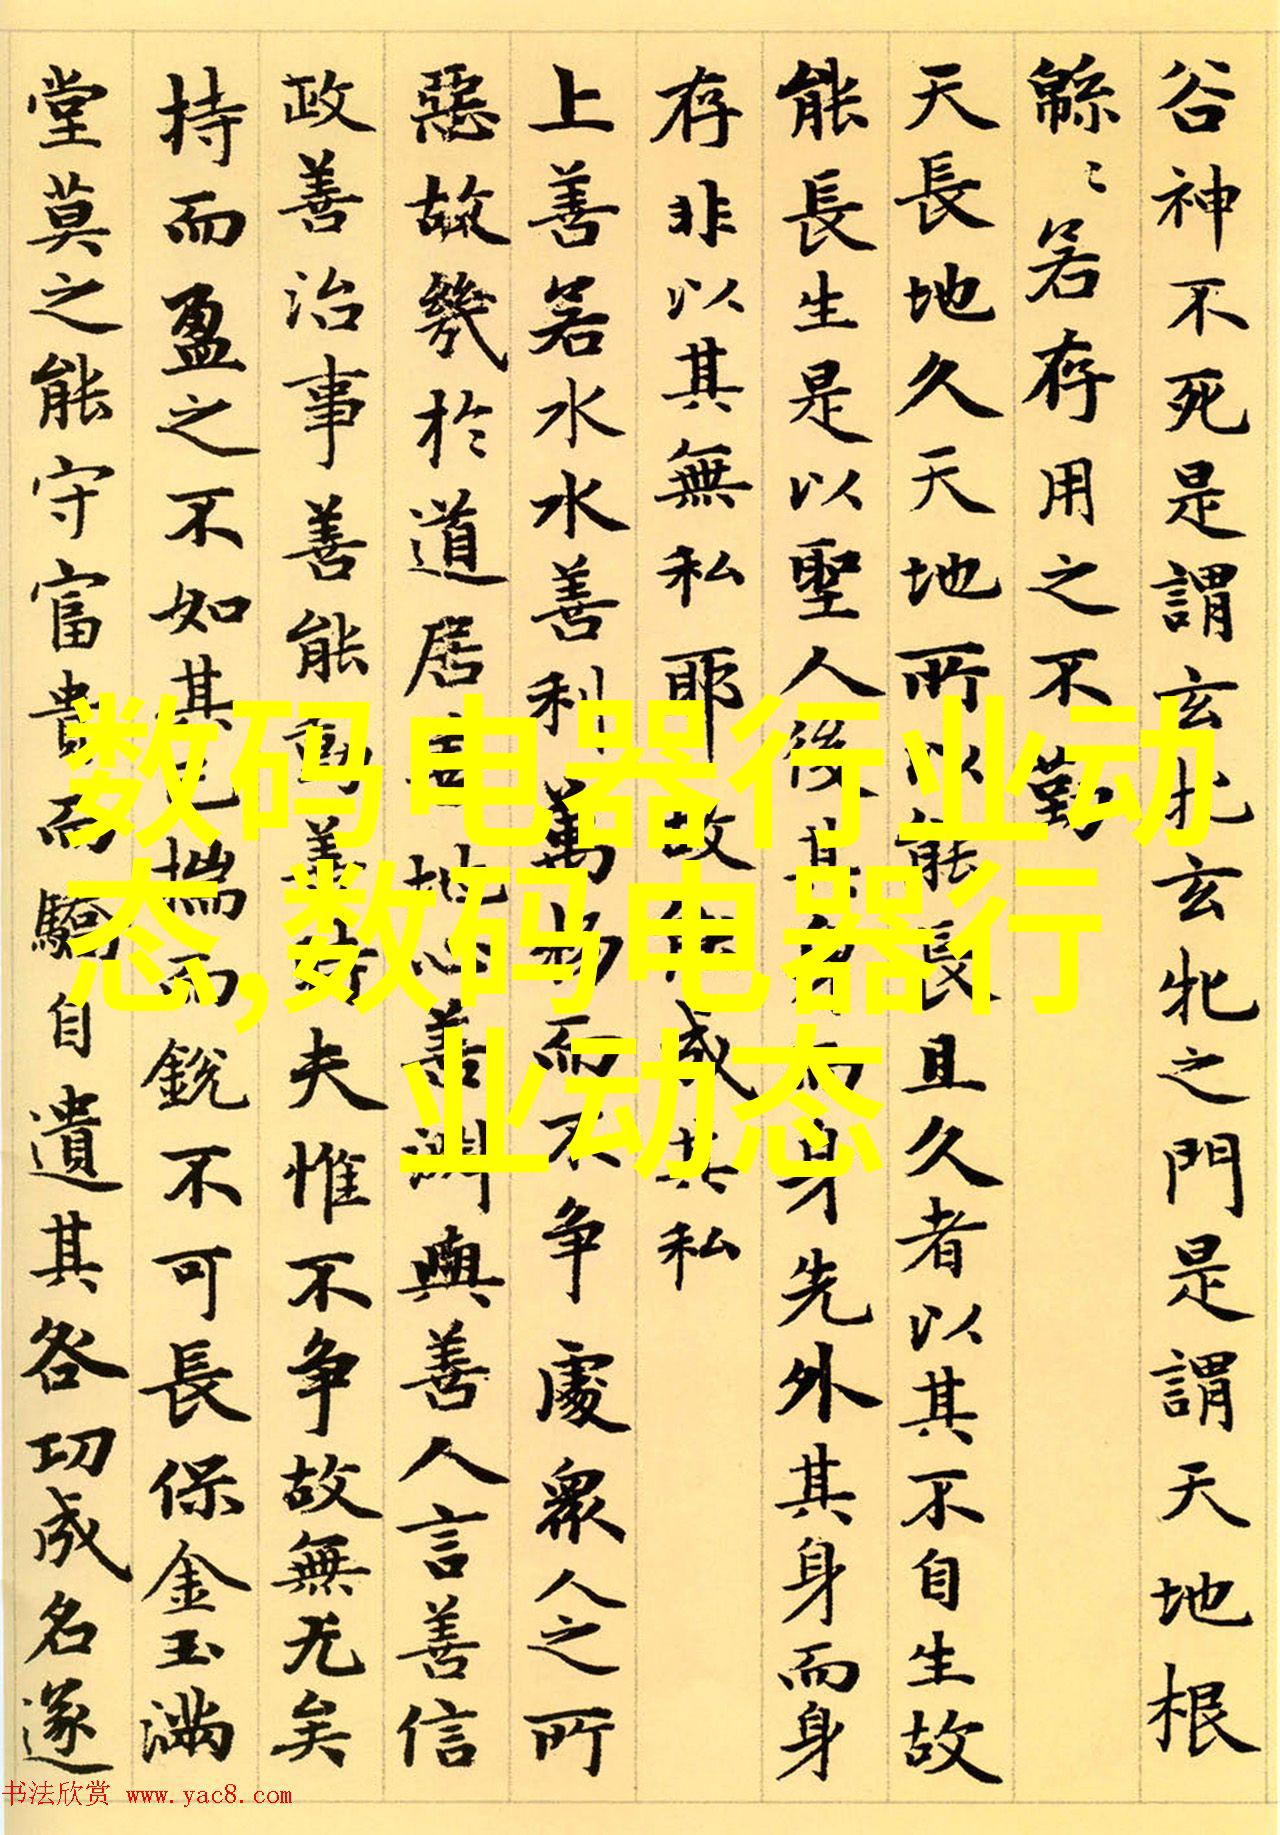 谷神不死是謂玄牝玄牝之門是謂天地根
緜〻若存用之不勤
天長地久天地所以能長且久者以其不自生故
能長生是以聖人後其身而身先外其身而身
存非以其無私耶故能成其私
上善若水水善利萬物而不争處衆人之所
惡故幾於道居善地心善渊與善人言善信
政善治事善能動善時夫惟不争故無尤矣
持而盈之不如其已揣而銳不可長保金玉滿
堂莫之能守富貴而驕自遺其咎功成名遂
数码电器行业动
态,数码电器行
业动态
书法欣赏 www.yac8.com